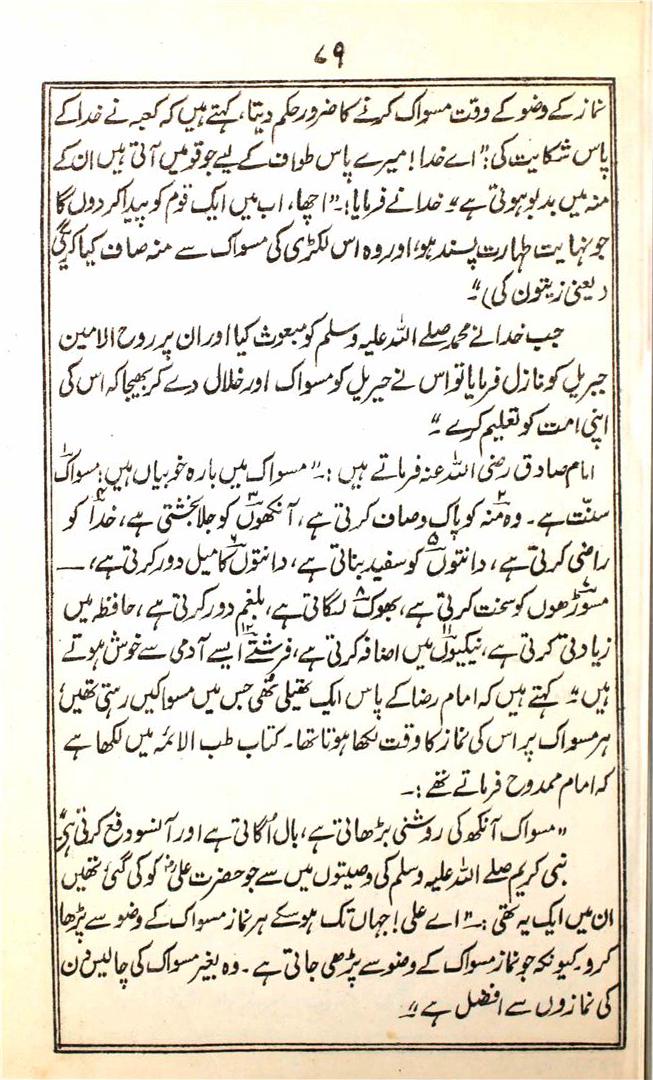 ۷۹
نماز کے وضو کے وقت مسواک کرنے کا ضرور حکم دیتا، کہتے ہیں کہ کعبہ نے خدا کے
پاس شکایت کی: "اے خدا! میرے پاس طواف کے لیے جو قومیں آتی ہیں ان کے
منہ میں بدبو ہوتی ہے" خدا نے فرمایا: "اچھا، اب میں ایک قوم کو پیدا کردوں گا
جو نہایت طہارت پسند ہو، اور وہ اس لکڑی کی مسواک سے منہ صاف کیا کریگی
(یعنی زیتون کی)"۔
جب خدا نے محمد صلے اللہ علیہ وسلم کو مبعوث کیا اور ان پر روح الامین
جبریل کو نازل فرمایا تو اس نے جبریل کو مسواک اور خلال دے کر بھیجا کہ اس کی
اپنی امت کو تعلیم کرے۔"
امام صادق رضی اللہ عنہ فرماتے ہیں:۔ "مسواک میں بارہ خوبیاں ہیں: مسواک۱
سنت ہے۔ وہ منہ۲ کو پاک وصاف کرتی ہے، آنکھوں۳ کو جلا بخشتی ہے، خدا۴ کو
راضی کرتی ہے، دانتوں۵ کو سفید بناتی ہے، دانتوں۶ کا میل دور کرتی ہے، —
مسوڑھوں۷ کو سخت کرتی ہے، بھوک۸ لگاتی ہے، بلغم دور کرتی ہے، حافظہ میں
زیادتی کرتی ہے، نیکیوں۱۱ میں اضافہ کرتی ہے، فرشتے۱۲ ایسے آدمی سے خوش ہوتے
ہیں" کہتے ہیں کہ امام رضا کے پاس ایک تھیلی تھی جس میں مسواکیں رہتی تھیں،
ہر مسواک پر اس کی نماز کا وقت لکھا ہوتا تھا۔ کتاب طب الائمہ میں لکھا ہے
کہ امام ممدوح فرماتے تھے:۔
"مسواک آنکھ کی روشنی بڑھاتی ہے، بال اُگاتی ہے اور آنسو دفع کرتی ہی"
نبی کریم صلے اللہ علیہ وسلم کی وصیتوں میں سے جو حضرت علیؓ کو کی گئی تھیں
ان میں ایک یہ تھی:۔ "اے علی! جہاں تک ہوسکے ہر نماز مسواک کے وضو سے پڑھا
کرو۔ کیونکہ جو نماز مسواک کے وضو سے پڑھی جاتی ہے۔ وہ بغیر مسواک کی چالیس دن
کی نمازوں سے افضل ہے"۔